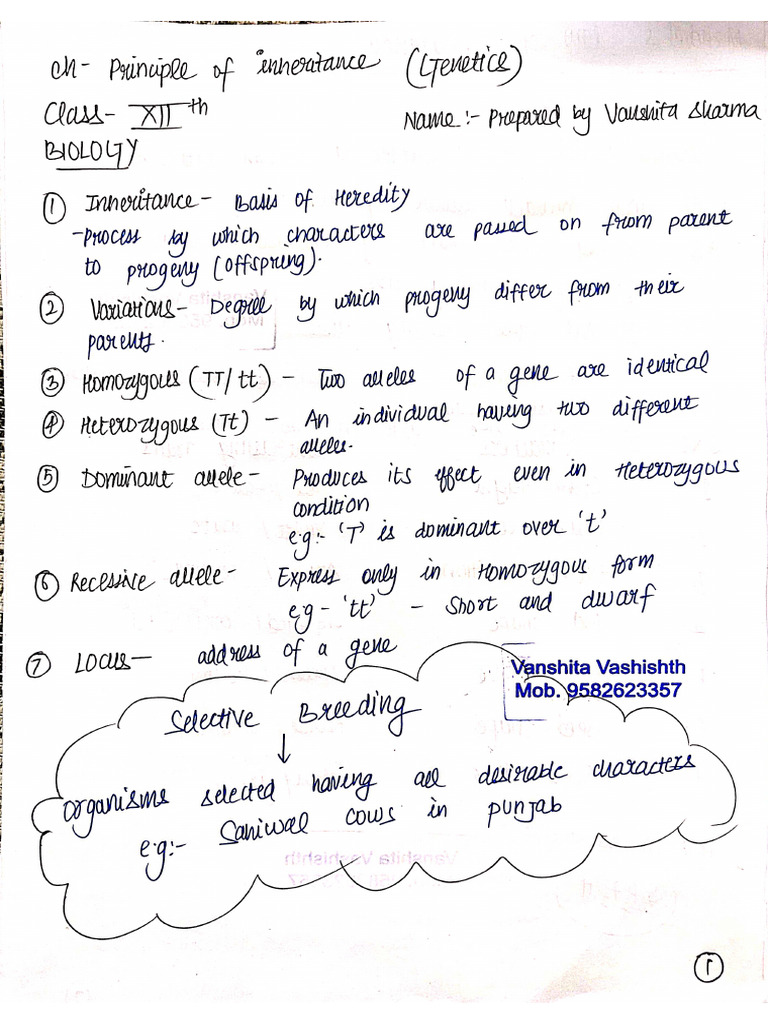 Ch- Principle of inheritance (Genetics)
Class- XII th
Name :- Prepared by Vanshita Sharma
BIOLOGY
① Inheritance - Basis of Heredity
-Process by which characters are passed on from parent
to progeny (offspring).
② Variations- Degree by which progeny differ from their
parents.
③ Homozygous (TT/tt) - Two alleles of a gene are identical
④ Heterozygous (Tt) - An individual having two different
alleles.
⑤ Dominant allele- Produces its effect even in Heterozygous
condition
e.g:- 'T' is dominant over 't'
⑥ Recessive allele- Express only in Homozygous form
eg- 'tt' - Short and dwarf
⑦ Locus— address of a gene
Vanshita Vashishth
Mob. 9582623357
Selective Breeding
↓
Organisms selected having all desirable characters
e.g:- Saniwal cows in punjab
①